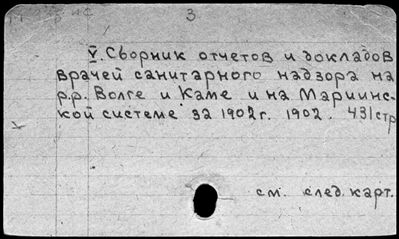 3
V. Сборник отчетов и докладов
врачей санитарного надзора на
р.р. Волге и Каме и на Мариинс-
кой системе за 1902 г. 1902. 431 стр
см. след. карт.